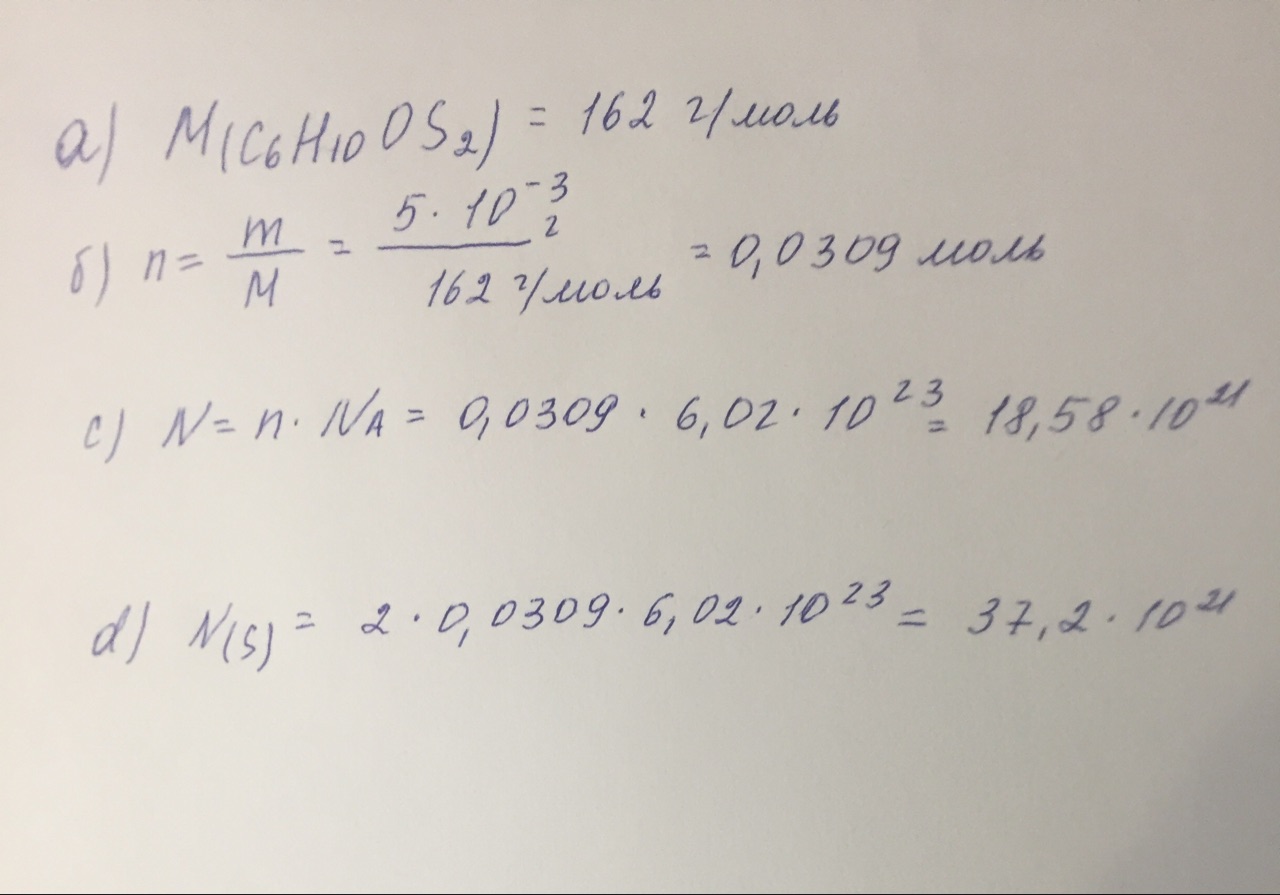 а) M(C₆H₁₀OS₂) = 162 г/моль
б) n = m/M = 5 · 10⁻³ г / 162 г/моль = 0,0309 моль
c) N = n · Nᴀ = 0,0309 · 6,02 · 10²³ = 18,58 · 10²¹
d) N(S) = 2 · 0,0309 · 6,02 · 10²³ = 37,2 · 10²¹